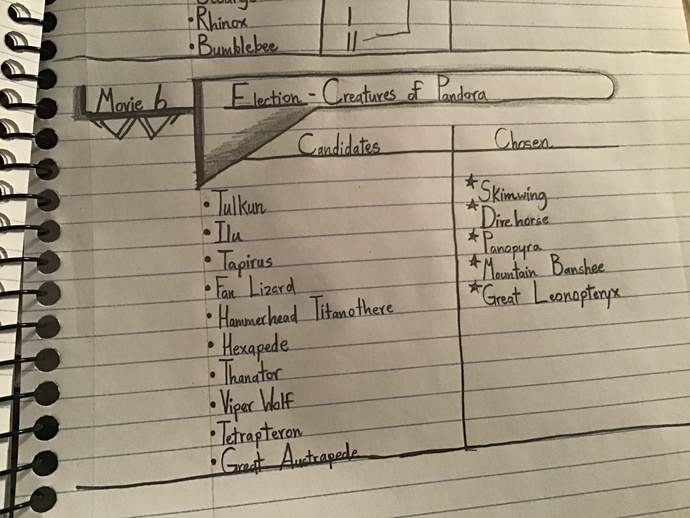 • Rhinox |
• Bumblebee ||
Movie 6
Election - Creatures of Pandora
Candidates
Chosen
• Tulkun
• Ilu
• Tapirus
• Fan Lizard
• Hammerhead Titanothere
• Hexapede
• Thanator
• Viper Wolf
• Tetrapteron
• Great Austrapede
★ Skimwing
★ Direhorse
★ Panopyra
★ Mountain Banshee
★ Great Leonopteryx